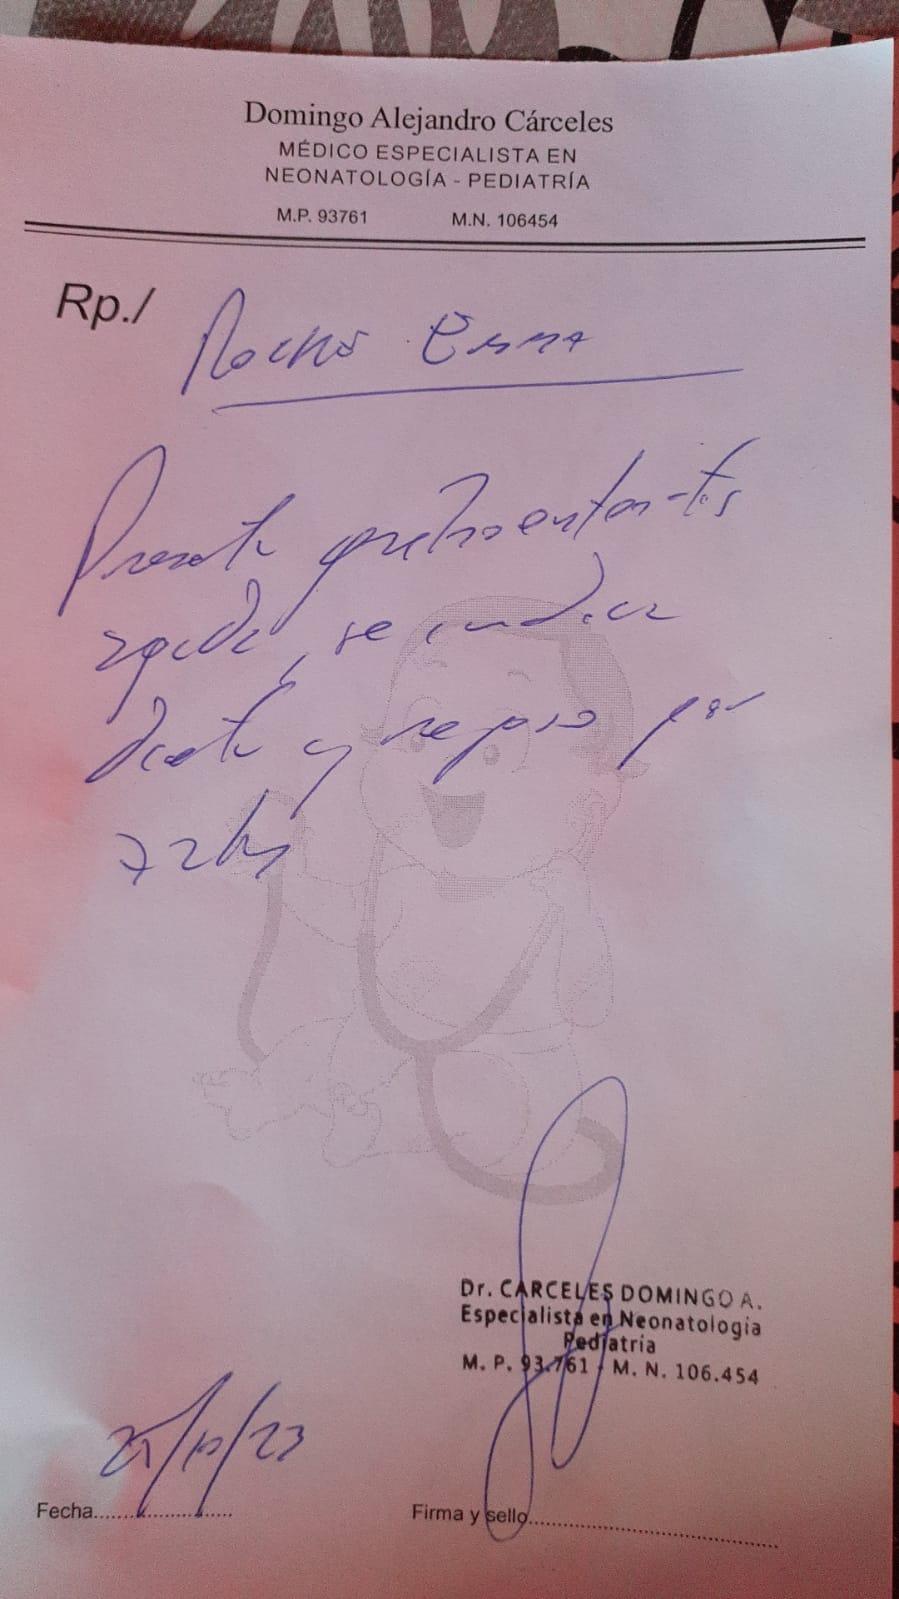 Domingo Alejandro Cárceles
MÉDICO ESPECIALISTA EN
NEONATOLOGÍA - PEDIATRÍA
M.P. 93761 M.N. 106454
Rp./ Emma
Presenta gastroenteritis
aguda, se indica
dieta y reposo por
72hs
Dr. CARCELES DOMINGO A.
Especialista en Neonatologia
Pediatria
M. P. 93.761 - M. N. 106.454
/10/23
Fecha
Firma y sello